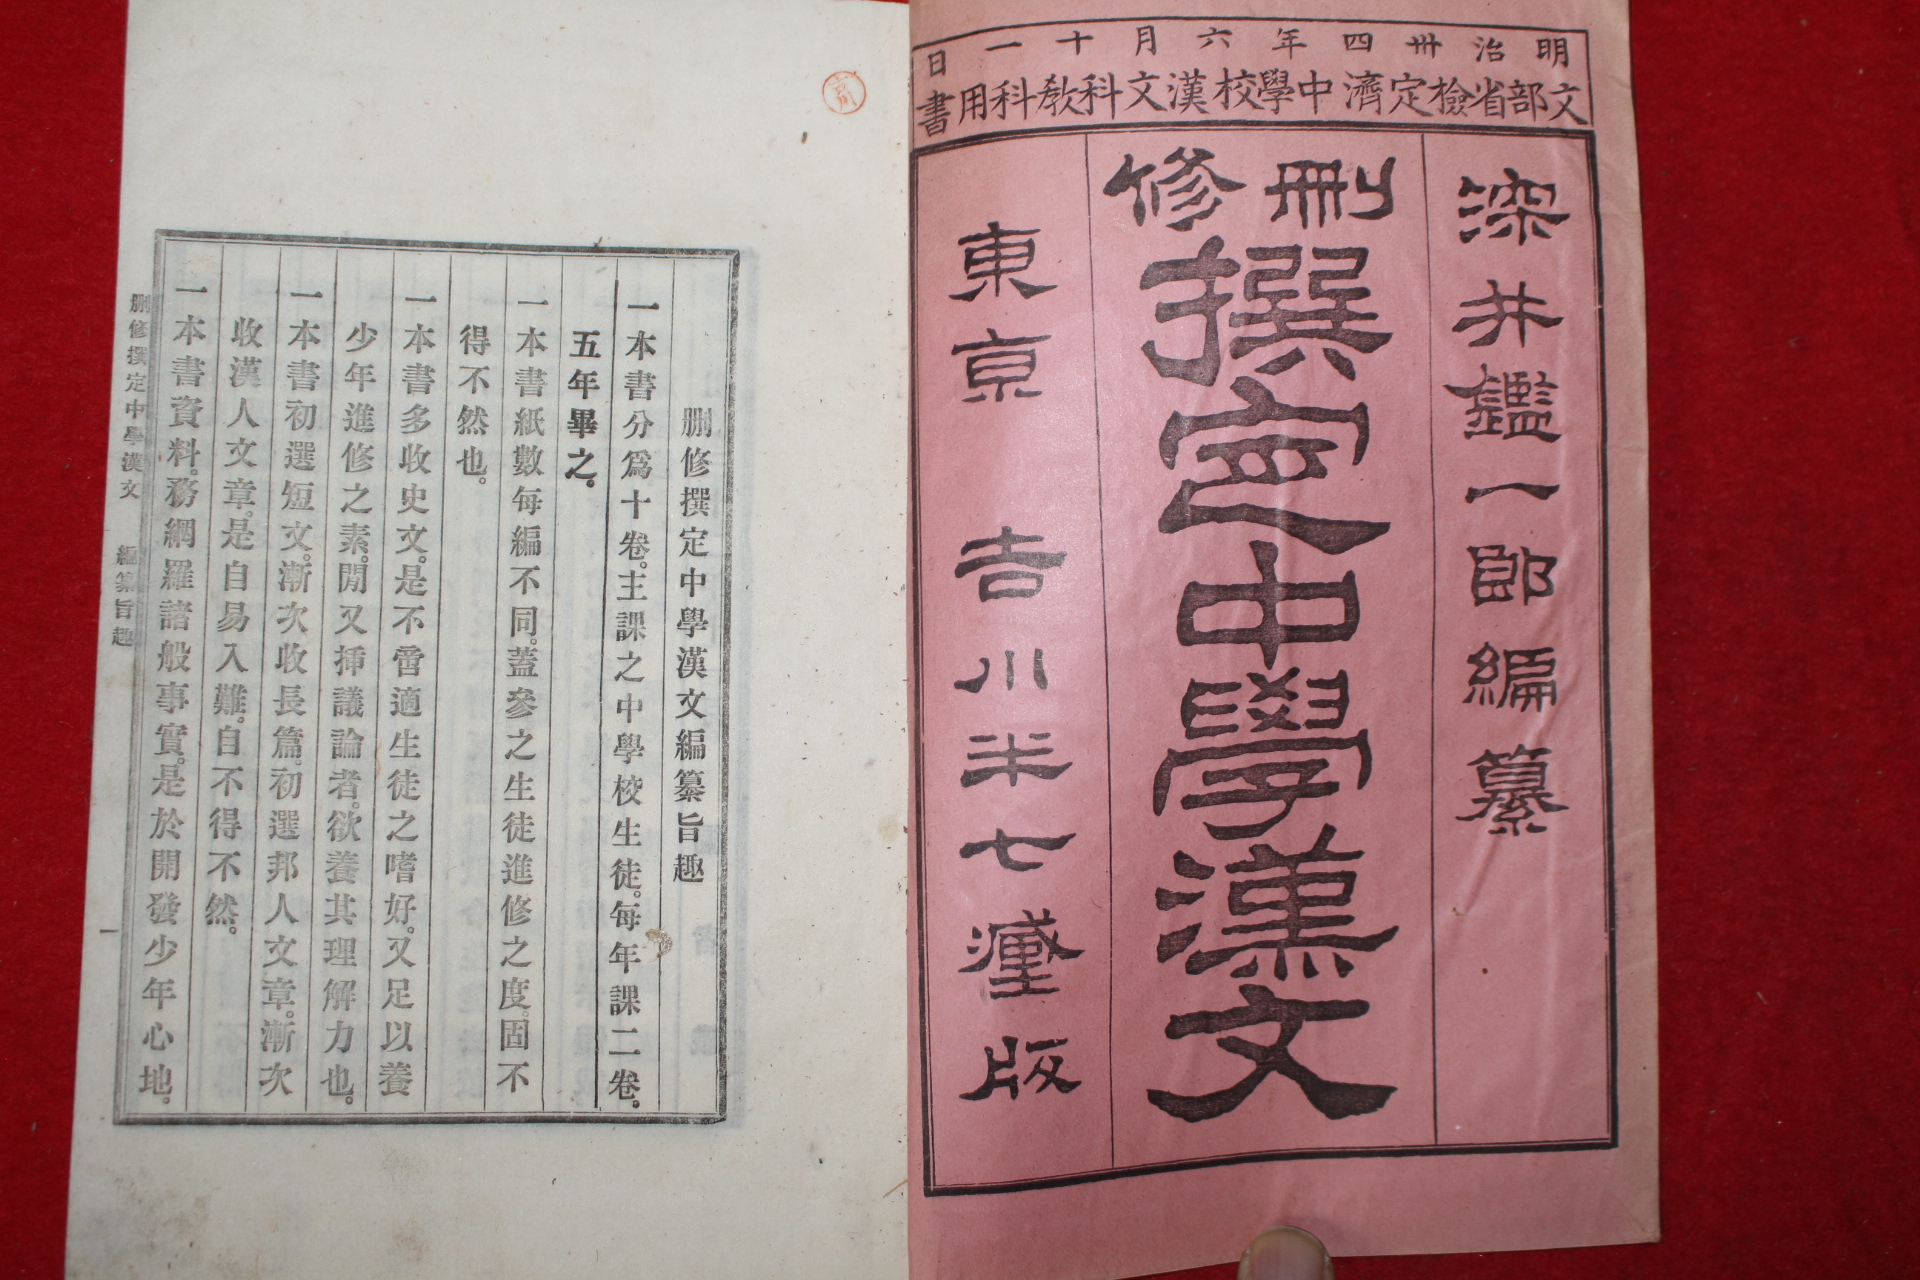 明治卅四年六月十一日
文部省檢定濟中學校漢文科敎科用書
深井鑑一郎編纂
刪修
撰定中學漢文
東京 吉川半七藏版
刪修撰定中學漢文編纂旨趣
一本書分爲十卷。主課之中學校生徒。每年課二卷。
五年畢之。
一本書紙數每編不同。蓋參之生徒進修之度。固不
得不然也。
一本書多收史文。是不啻適生徒之嗜好。又足以養
少年進修之素。間又揷議論者。欲養其理解力也。
一本書初選短文。漸次收長篇。初選邦人文章。漸次
收漢人文章。是自易入難。自不得不然。
一本書資料。務網羅諸般事實。是於開發少年心地。
刪修撰定中學漢文 編纂旨趣 一